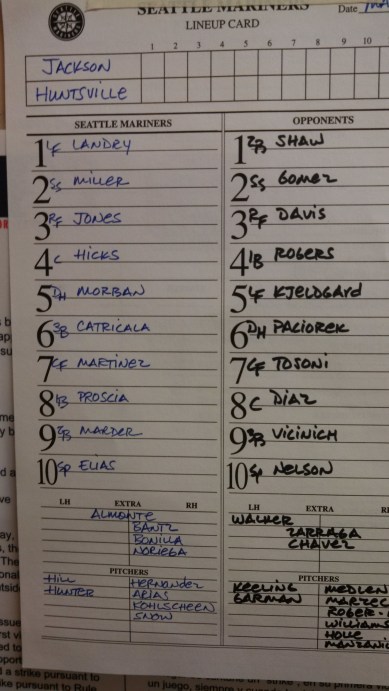 SEATTLE MARINERS
LINEUP CARD
Date
1 2 3 4 5 6 7 8 9 10
JACKSON
HUNTSVILLE
SEATTLE MARINERS
1 LF LANDRY
2 SS MILLER
3 RF JONES
4 C HICKS
5 DH MORBAN
6 3B CATRICALA
7 CF MARTINEZ
8 1B PROSCIA
9 2B MARDER
10 SP ELIAS
LH EXTRA RH
ALMONTE
BANTZ
BONILLA
NORIEGA
PITCHERS
HILL HERNANDEZ
HUNTER ARIAS
KOHLSCHEEN
SNOW
OPPONENTS
1 2B SHAW
2 SS GOMEZ
3 RF DAVIS
4 1B ROGERS
5 LF KJELDGARD
6 DH PACIOREK
7 CF TOSONI
8 C DIAZ
9 3B VICINICH
10 SP NELSON
LH EXTRA
WALKER
ZARRAGA
CHAVEZ
PITCHERS
KEELING MEDLEN
GARMAN MARZEC
ROGER
WILLIAMS
HOLLE
MANZANI
a strike pursuant to
ke pursuant to Rule
un juego, siempre y